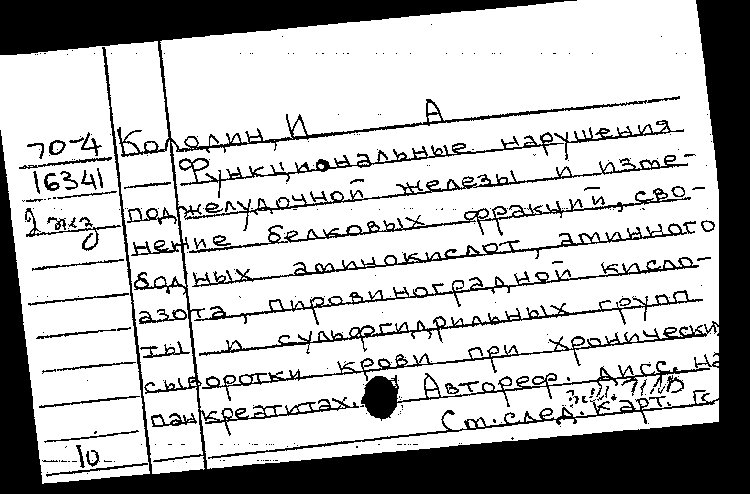 70-4 Колодин, И А
16341 Функциональные нарушения
2 экз поджелудочной железы и изме-
нение белковых фракций, сво-
бодных аминокислот, аминного
азота, пировиноградной кисло-
ты и сульфгидрильных групп
сыворотки крови при хронически
панкреатитах. Автореф. дисс. на
Ст. след. карт.
10